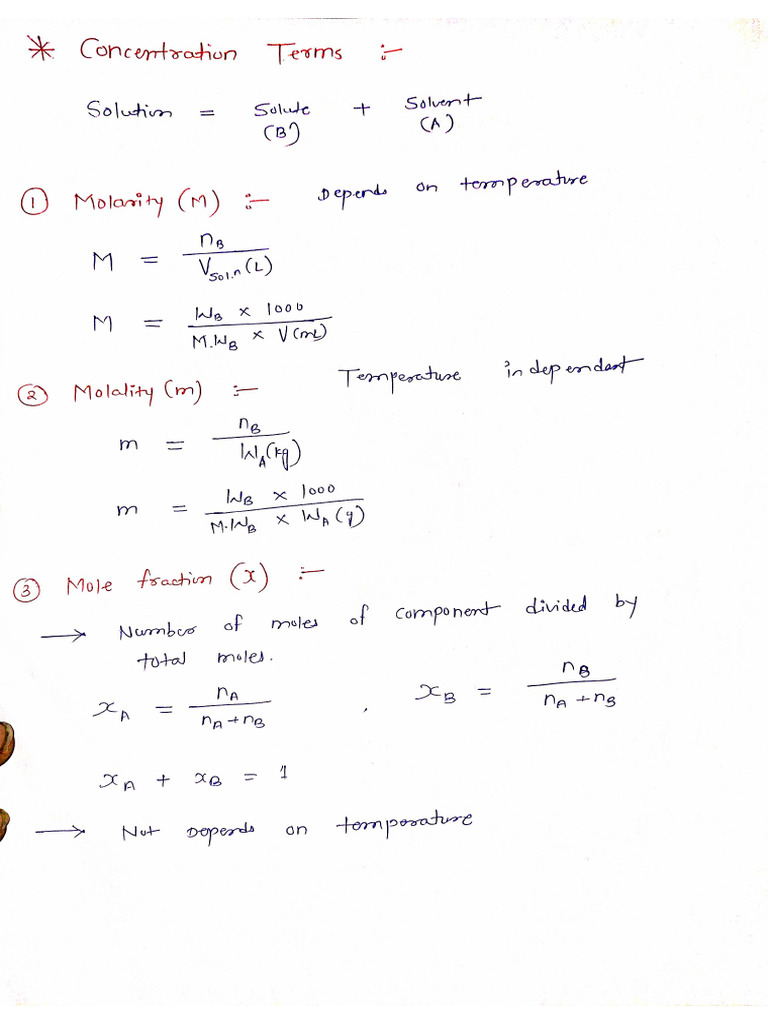 * Concentration Terms :-
Solution = Solute (B) + Solvent (A)
① Molarity (M) :- Depends on temperature
M = n_B / V_sol.n (L)
M = W_B × 1000 / M.W_B × V(mL)
② Molality (m) :- Temperature independant
m = n_B / W_A (kg)
m = W_B × 1000 / M.W_B × W_A (g)
③ Mole fraction (x) :-
→ Number of moles of component divided by
total moles.
x_A = n_A / n_A + n_B , x_B = n_B / n_A + n_B
x_A + x_B = 1
→ Not Depends on temperature